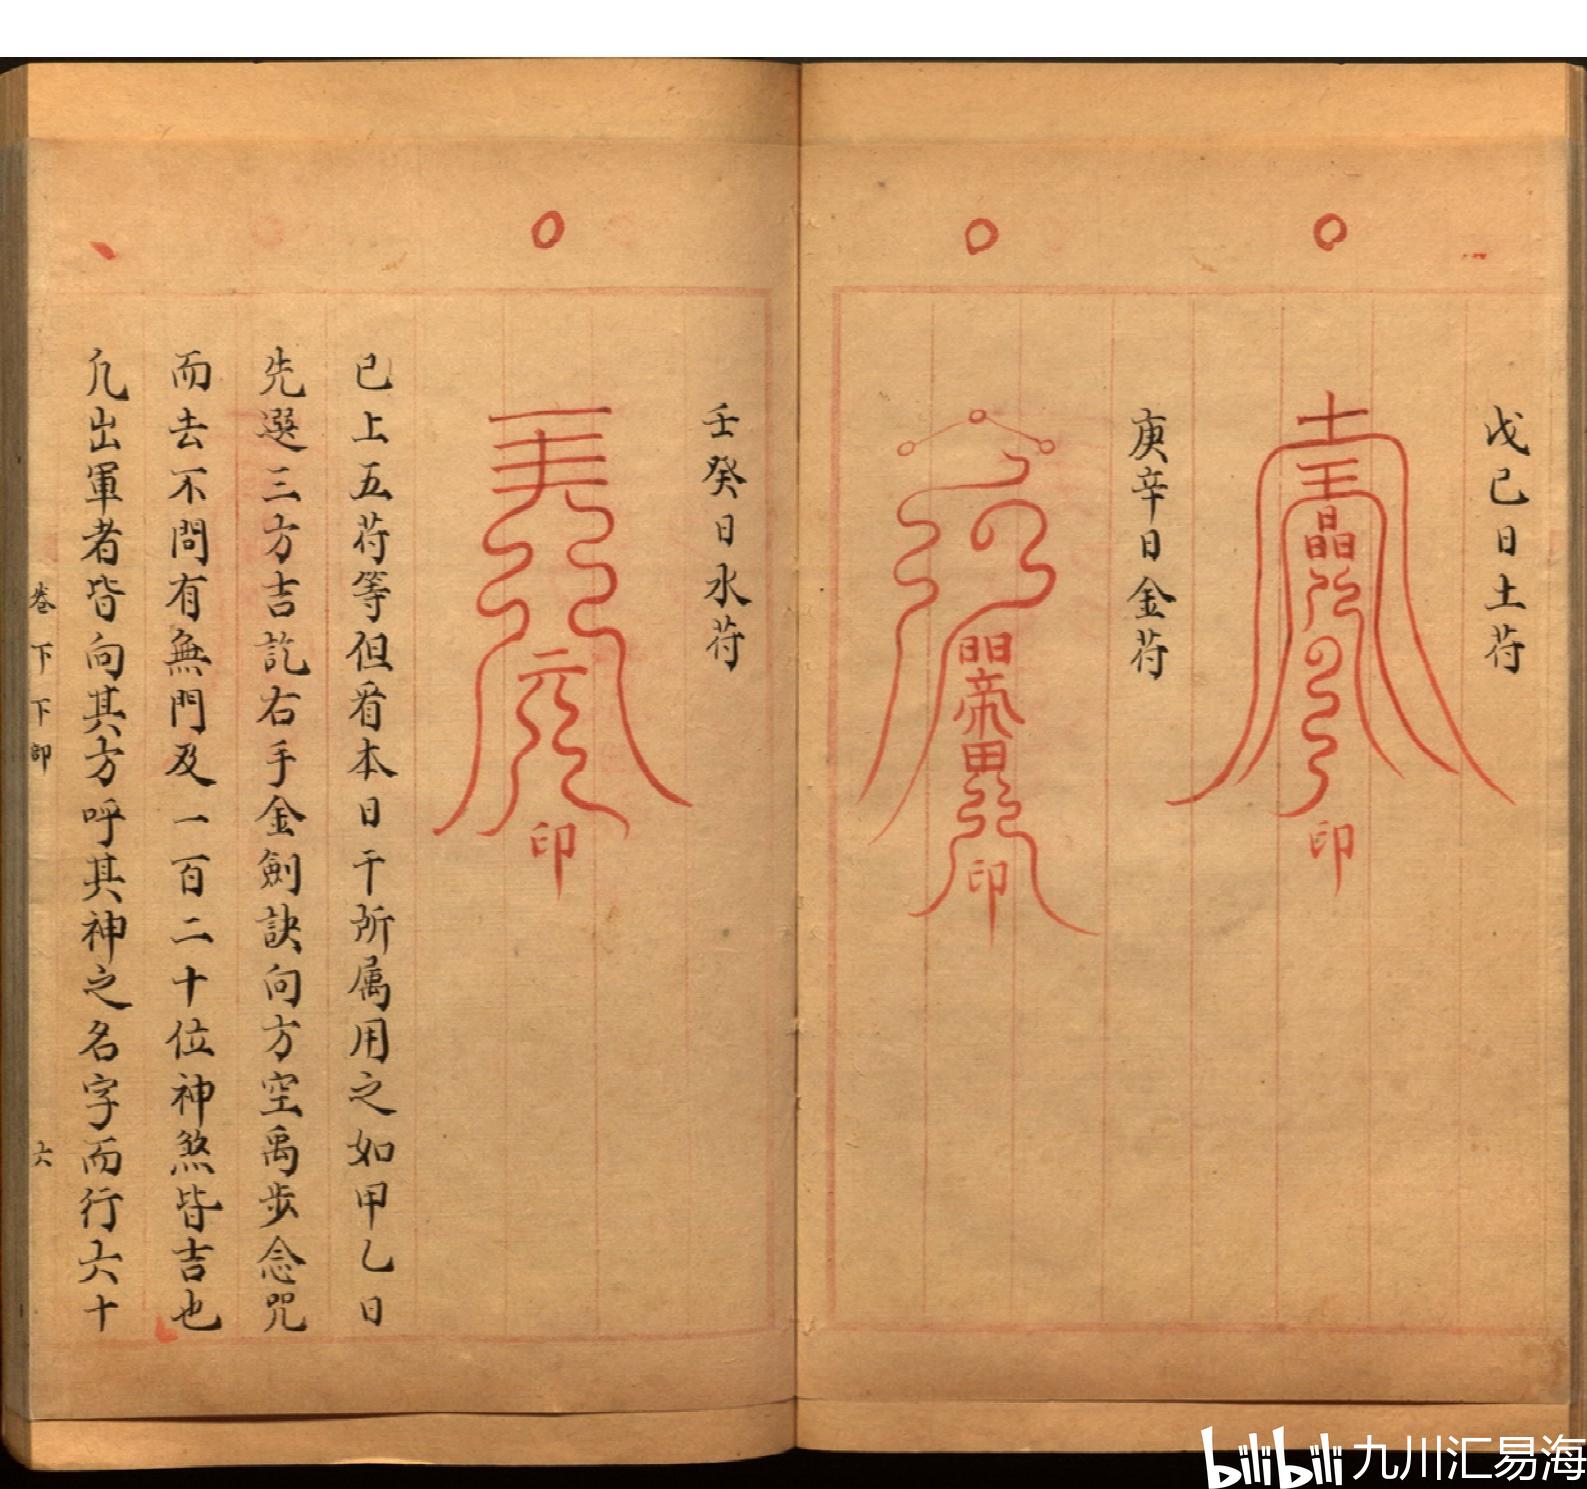 戊己日土符
王
晶
印
庚辛日金符
門
帝
田
印
壬癸日水符
印
已上五符等但看本日干所属用之如甲乙日
先選三方吉訖右手金劍訣向方空禹步念咒
而去不問有無門及一百二十位神煞皆吉也
凢出軍者皆向其方呼其神之名字而行六十
卷下下卽 六
bilibili 九川汇易海